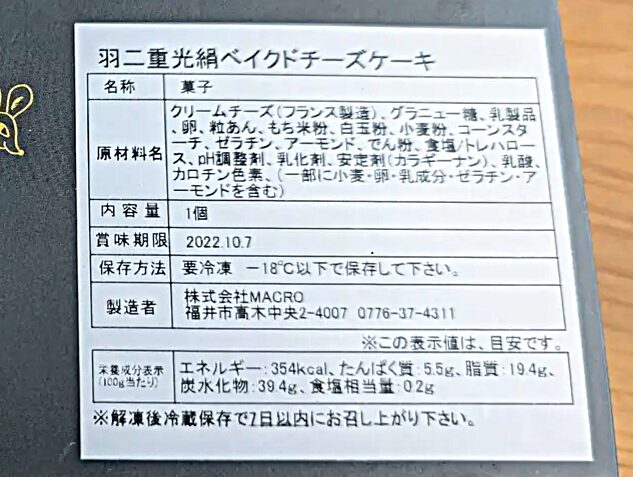 羽二重光絹ベイクドチーズケーキ
名称 菓子
原材料名 クリームチーズ(フランス製造)、グラニュー糖、乳製品
、卵、粒あん、もち米粉、白玉粉、小麦粉、コーンスタ
ーチ、ゼラチン、アーモンド、でん粉、食塩/トレハロー
ス、pH調整剤、乳化剤、安定剤(カラギーナン)、乳酸、
カロチン色素、(一部に小麦・卵・乳成分・ゼラチン・ア
ーモンドを含む)
内容量 1個
賞味期限 2022.10.7
保存方法 要冷凍 -18℃以下で保存して下さい。
製造者 株式会社MACRO
福井市高木中央2-4007 0776-37-4311
※この表示値は、目安です。
栄養成分表示
(100g当たり)
エネルギー:354kcal、たんぱく質:5.5g、脂質:19.4g、
炭水化物:39.4g、食塩相当量:0.2g
※解凍後冷蔵保存で7日以内にお召し上がり下さい。